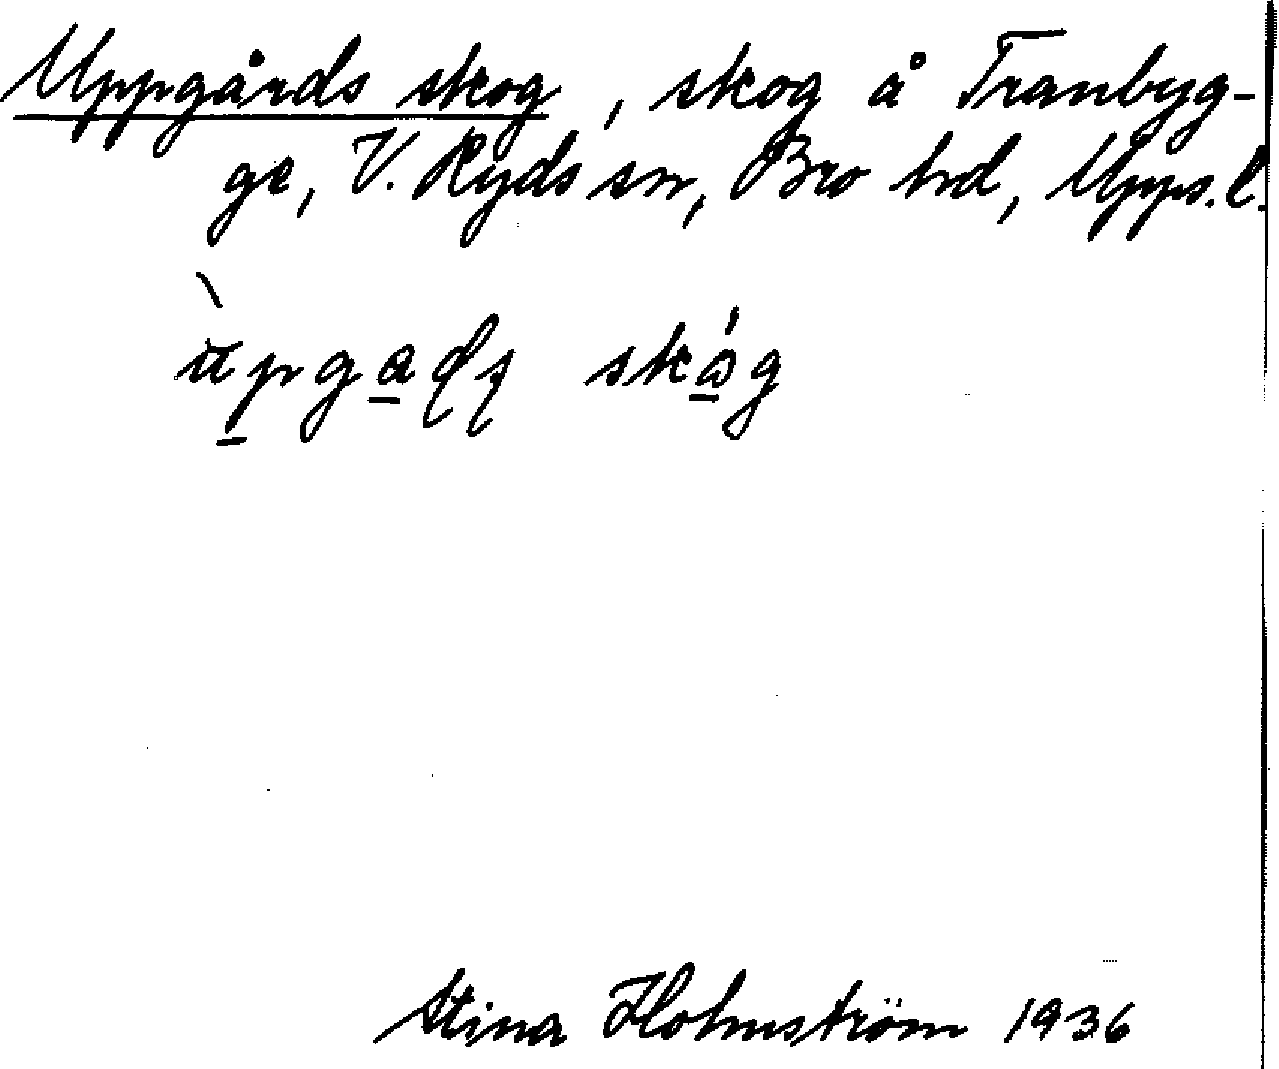 Uppgårds skog, skog å Tranbyg-
ge, V. Ryds sn, Bro hd, Upps. l.
skóg
Stina Holmström 1936